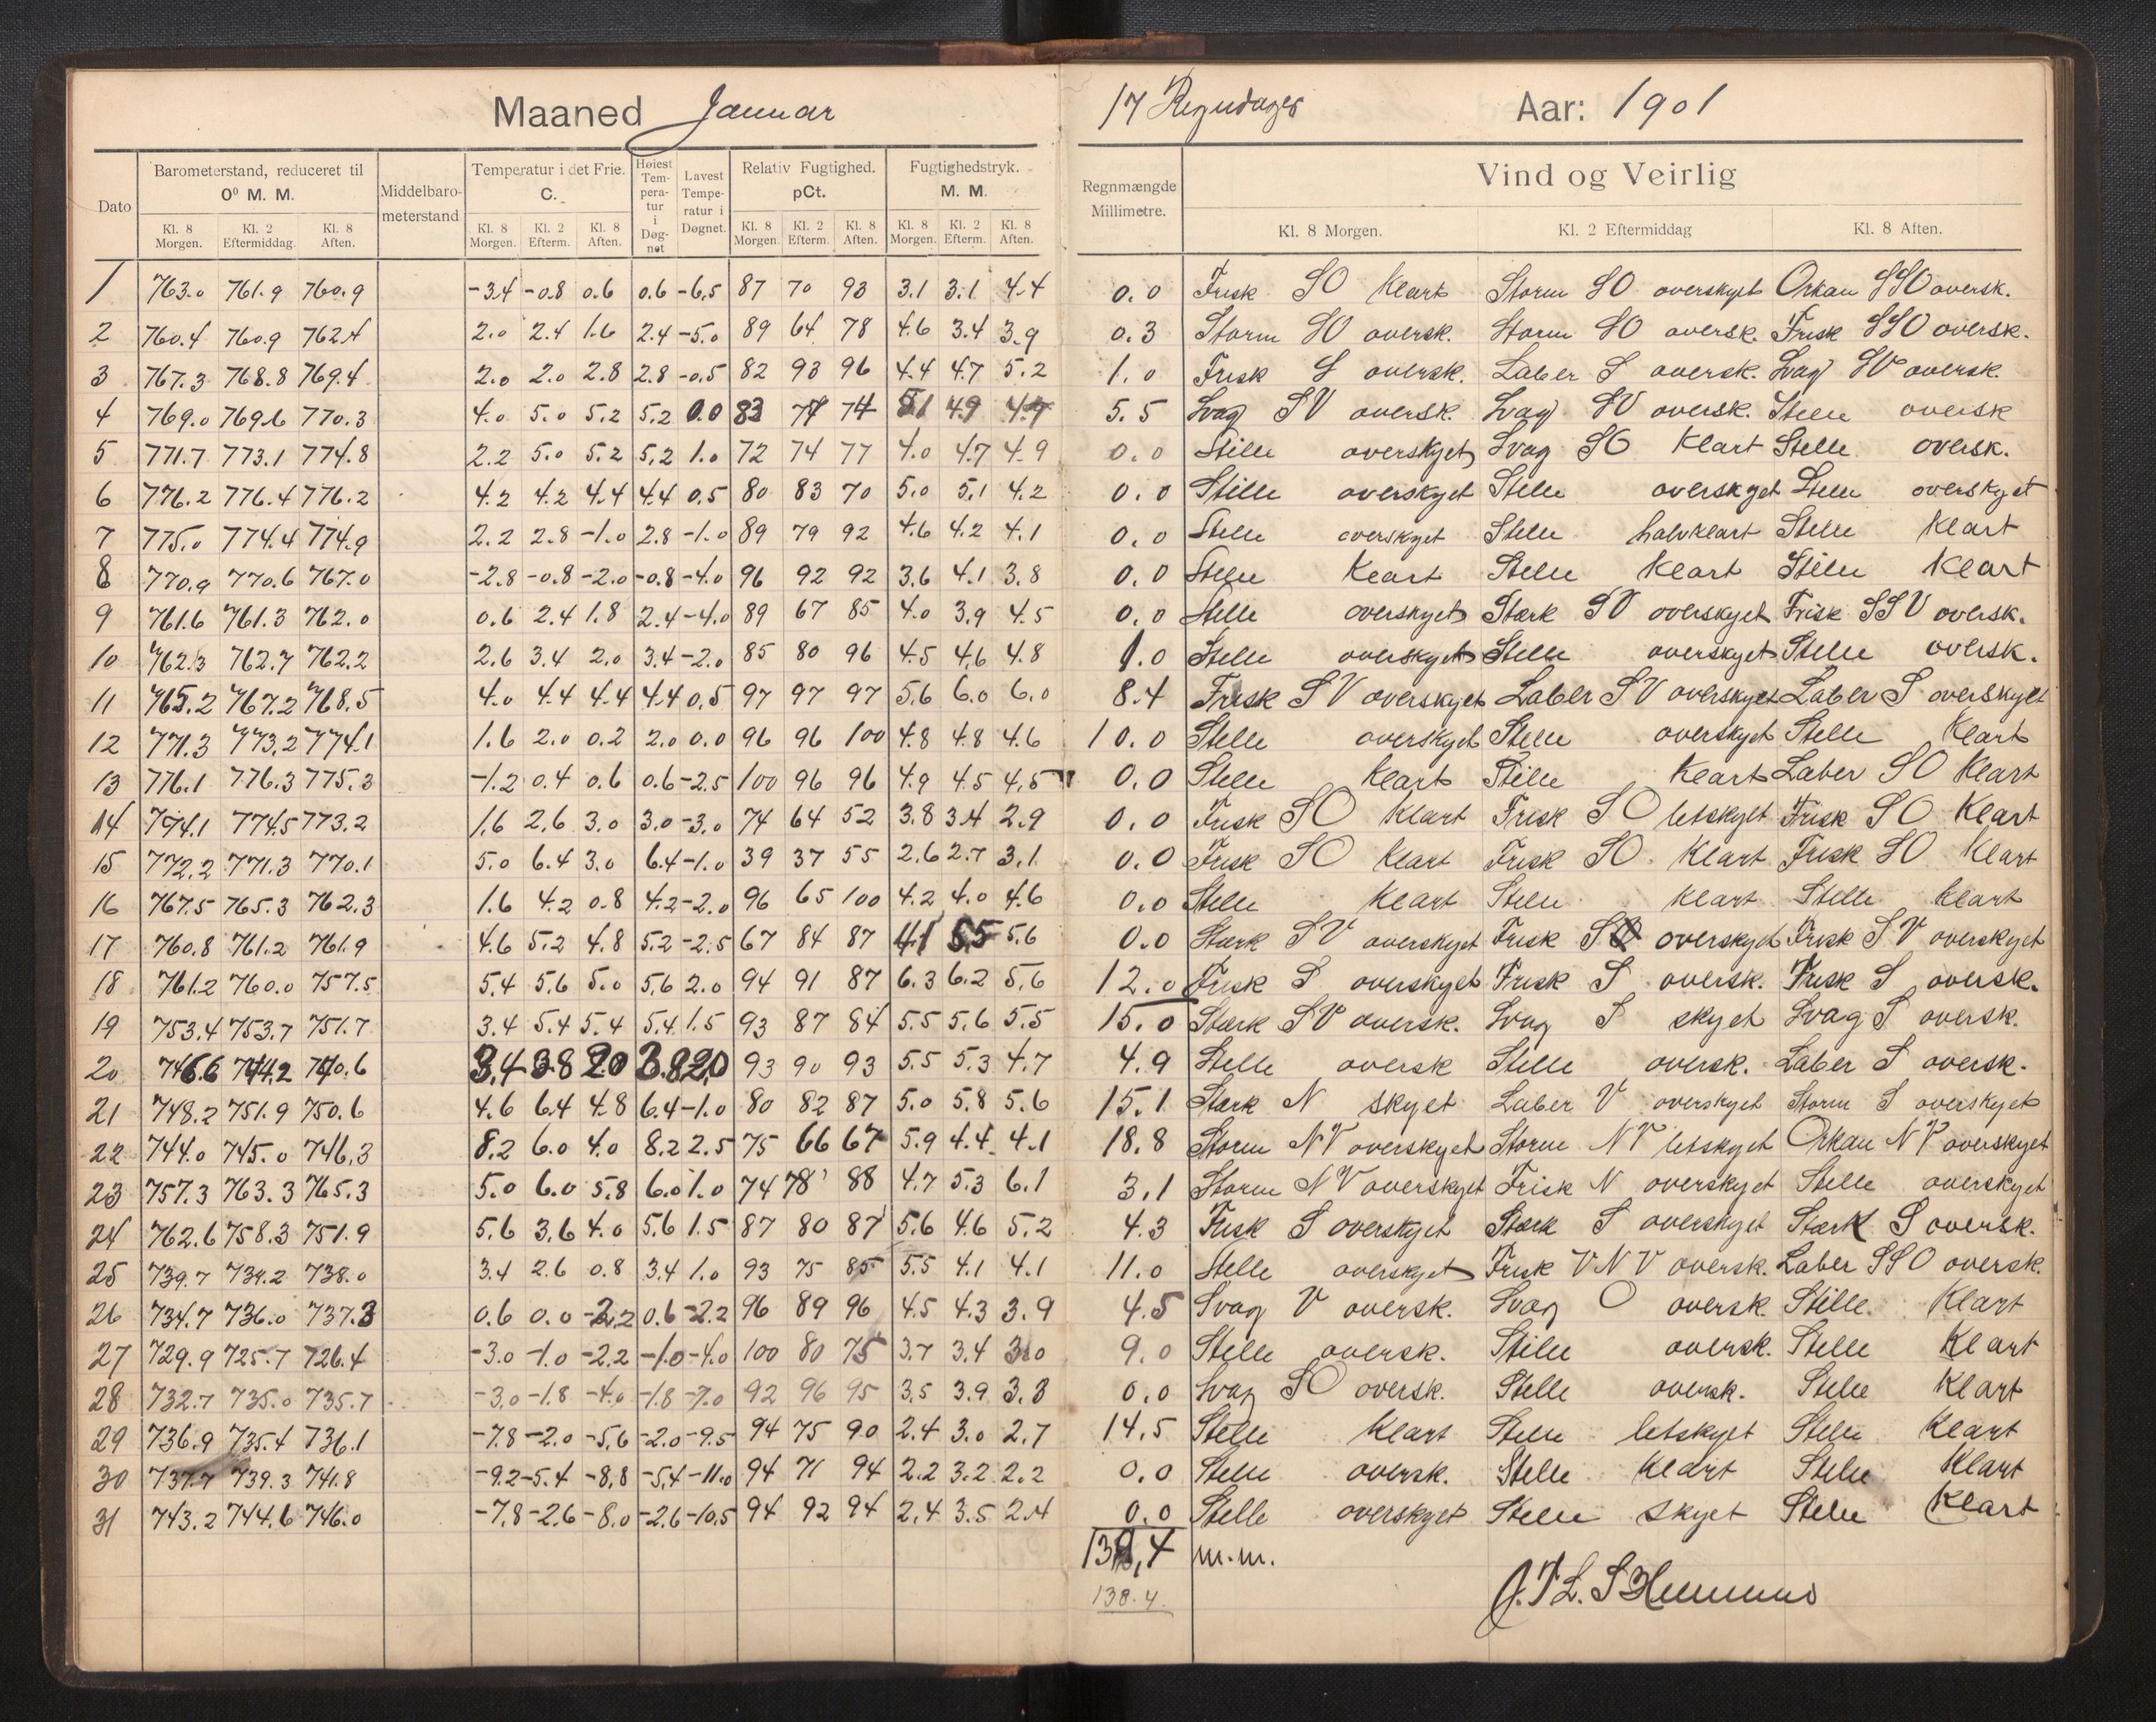 Maaned Januar
17 Regndager Aar: 1901
Dato Barometerstand, reduceret til 0⁰ M. M. Middelbarometerstand Temperatur i det Frie. C. Høiest Temperatur i Døgnet Lavest Temperatur i Døgnet. Relativ Fugtighed. pCt. Fugtighedstryk. M. M. Regnmængde Millimetre. Vind og Veirlig
Kl. 8 Morgen. Kl. 2 Eftermiddag. Kl. 8 Aften. Kl. 8 Morgen. Kl. 2 Efterm. Kl. 8 Aften. Kl. 8 Morgen. Kl. 2 Efterm. Kl. 8 Aften. Kl. 8 Morgen. Kl. 2 Efterm. Kl. 8 Aften. Kl. 8 Morgen. Kl. 2 Eftermiddag Kl. 8 Aften.
1 763.0 761.9 760.9 -3.4 -0.8 0.6 0.6 -6,5 87 70 93 3.1 3.1 4.4 0.0 Frisk SO Klart Storm SO overskyet Orkan SSO oversk.
2 760.4 760.9 762.4 2.0 2.4 1.6 2.4 -5.0 89 64 78 4.6 3.4 3.9 0.3 Storm SO oversk. Storm SO oversk. Frisk SSO oversk.
3 767.3 768.8 769.4 2.0 2.0 2.8 2.8 -0.5 82 93 96 4.4 4.7 5.2 1.0 Frisk S oversk. Laber S oversk. Svag SV oversk.
4 769.0 769.6 770.3 4.0 5.0 5.2 5.2 0.0 83 74 5.1 4.9 4.7 5.5 Svag SV oversk. Svag SV oversk. Stille oversk
5 771.7 773.1 774.8 2.2 5.0 5.2 5,2 1.0 72 74 77 4.0 4.7 4.9 0.0 Stille overskyet Svag SO Klart Stille oversk.
6 776.2 776.4 776.2 4.2 4.2 4.4 4.4 0.5 80 83 70 5.0 5,1 4.2 0.0 Stille overskyet Stille overskyet Stille overskyet
7 775.0 774.4 774.9 2.2 2.8 -1.0 2.8 -1.0 89 79 92 4.6 4.2 4.1 0.0 Stille overskyet Stille halvklart Stille Klart
8 770.9 770.6 767.0 -2.8 -0.8 -2.0 -0.8 -4.0 96 92 92 3,6 4.1 3.8 0.0 Stille Klart Stille Klart Stille Klart
9 761.6 761.3 762.0 0.6 2.4 1.8 2.4 -4.0 89 67 85 4.0 3.9 4.5 0.0 Stille overskyet Stærk SV overskyet Frisk SSV oversk.
10 762.3 762.7 762.2 2.6 3.4 2.0 3.4 -2.0 85 80 96 4.5 4,6 4.8 1.0 Stille overskyet Stille overskyet Stille oversk.
11 765.2 767.2 768.5 4.0 4.4 4.4 4.4 0,5 97 97 97 5.6 6.0 6.0 8.4 Frisk SV overskyet Laber SV overskyet Laber S overskyet
12 771.3 773.2 774.1 1.6 2.0 0.2 2.0 0.0 96 96 100 4.8 4.8 4.6 10.0 Stille overskyet Stille overskyet Stille Klart
13 776.1 776.3 775.3 -1.2 0.4 0.6 0.6 -2.5 100 96 96 4.9 4.5 4,5 0.0 Stille Klart Stille Klart Laber SO Klart
14 774.1 774.5 773.2 1.6 2.6 3.0 3.0 -3.0 74 64 52 3.8 3.4 2.9 0.0 Frisk SO Klart Frisk SO letskyet Frisk SO Klart
15 772.2 771.3 770.1 5.0 6.4 3.0 6.4 -1.0 39 37 55 2.6 2.7 3,1 0.0 Frisk SO Klart Frisk SO. Klart Frisk SO Klart
16 767.5 765.3 762.3 1.6 4.2 0.8 4.2 -2.0 96 65 100 4.2 4.0 4.6 0.0 Stille Klart Stille Klart Stille Klart
17 760.8 761.2 761.9 4.6 5.2 4.8 5.2 -2.5 67 84 87 4.1 5.5 5.6 0.0 Stærk SV overskyet Frisk S overskyet Frisk SV overskyet
18 761.2 760.0 757.5 5.4 5.6 5.0 5.6 2.0 94 91 87 6.3 6.2 5,6 12.0 Frisk S overskyet Frisk S oversk. Frisk S oversk.
19 753.4 753.7 751.7 3.4 5.4 5.4 5.4 1.5 93 87 84 5.5 5.6 5.5 15.0 Stærk SV oversk. Svag S skyet Svag S oversk.
20 746.6 744.2 740.6 3,4 3.8 2.0 3.8 2,0 93 90 93 5.5 5.3 4.7 4.9 Stille oversk Stille oversk. Laber S oversk.
21 748.2 751.9 750.6 4.6 6.4 4.8 6.4 -1.0 80 82 87 5.0 5.8 5.6 15.1 Stærk N skyet Laber V overskyet Storm S overskyet
22 744.0 745.0 746.3 8.2 6.0 4.0 8.2 2.5 75 66 67 5.9 4.4 4.1 18.8 Storm NV overskyet Storm NV letskyet Orkan NV overskyet
23 757.3 763.3 765.3 5.0 6.0 5.8 6.0 1.0 74 78 88 4.7 5.3 6.1 3.1 Storm NV overskyet Frisk N overskyet Stille overskyet
24 762.6 758.3 751.9 5.6 3.6 4.0 5.6 1.5 87 80 87 5.6 4.6 5.2 4.3 Frisk S overskyet Stærk S overskyet Stærk S oversk.
25 739.7 739.2 738.0 3.4 2.6 0.8 3.4 1.0 93 75 85 5.5 4.1 4.1 11.0 Stille overskyet Frisk VNV oversk. Laber SSO oversk.
26 734.7 736.0 737.3 0.6 0.0 -2,2 0.6 -2.2 96 89 96 4.5 4.3 3.9 4.5 Svag V oversk. Svag O oversk. Stille. Klart
27 729.9 725.7 726.4 -3.0 -1.0 -2,2 -1.0 -4.0 100 80 75 3.7 3.4 3.0 9.0 Stille oversk. Stille oversk. Stille Klart
28 732.7 735.0 735.7 -3.0 -1.8 -4.0 -1.8 -7.0 92 96 95 3.5 3.9 3.3 0.0 Svag SO oversk. Stille oversk. Stille Klart
29 736.9 735.4 736.1 -7.8 -2.0 -5,6 -2.0 -9.5 94 75 90 2.4 3.0 2.7 14.5 Stille Klart Stille letskyet Stille Klart
30 737.7 739.3 741.8 -9.2 -5.4 -8.8 -5,4 -11.0 94 71 94 2.2 3.2 2.2 0.0 Stille oversk. Stille Klart Stille Klart
31 743.2 744.6 746.0 -7.8 -2.6 -8.0 -2.6 -10.5 94 92 94 2,4 3.5 2.4 0.0 Stille overskyet Stille skyet Stille Klart
m.m.
138.4